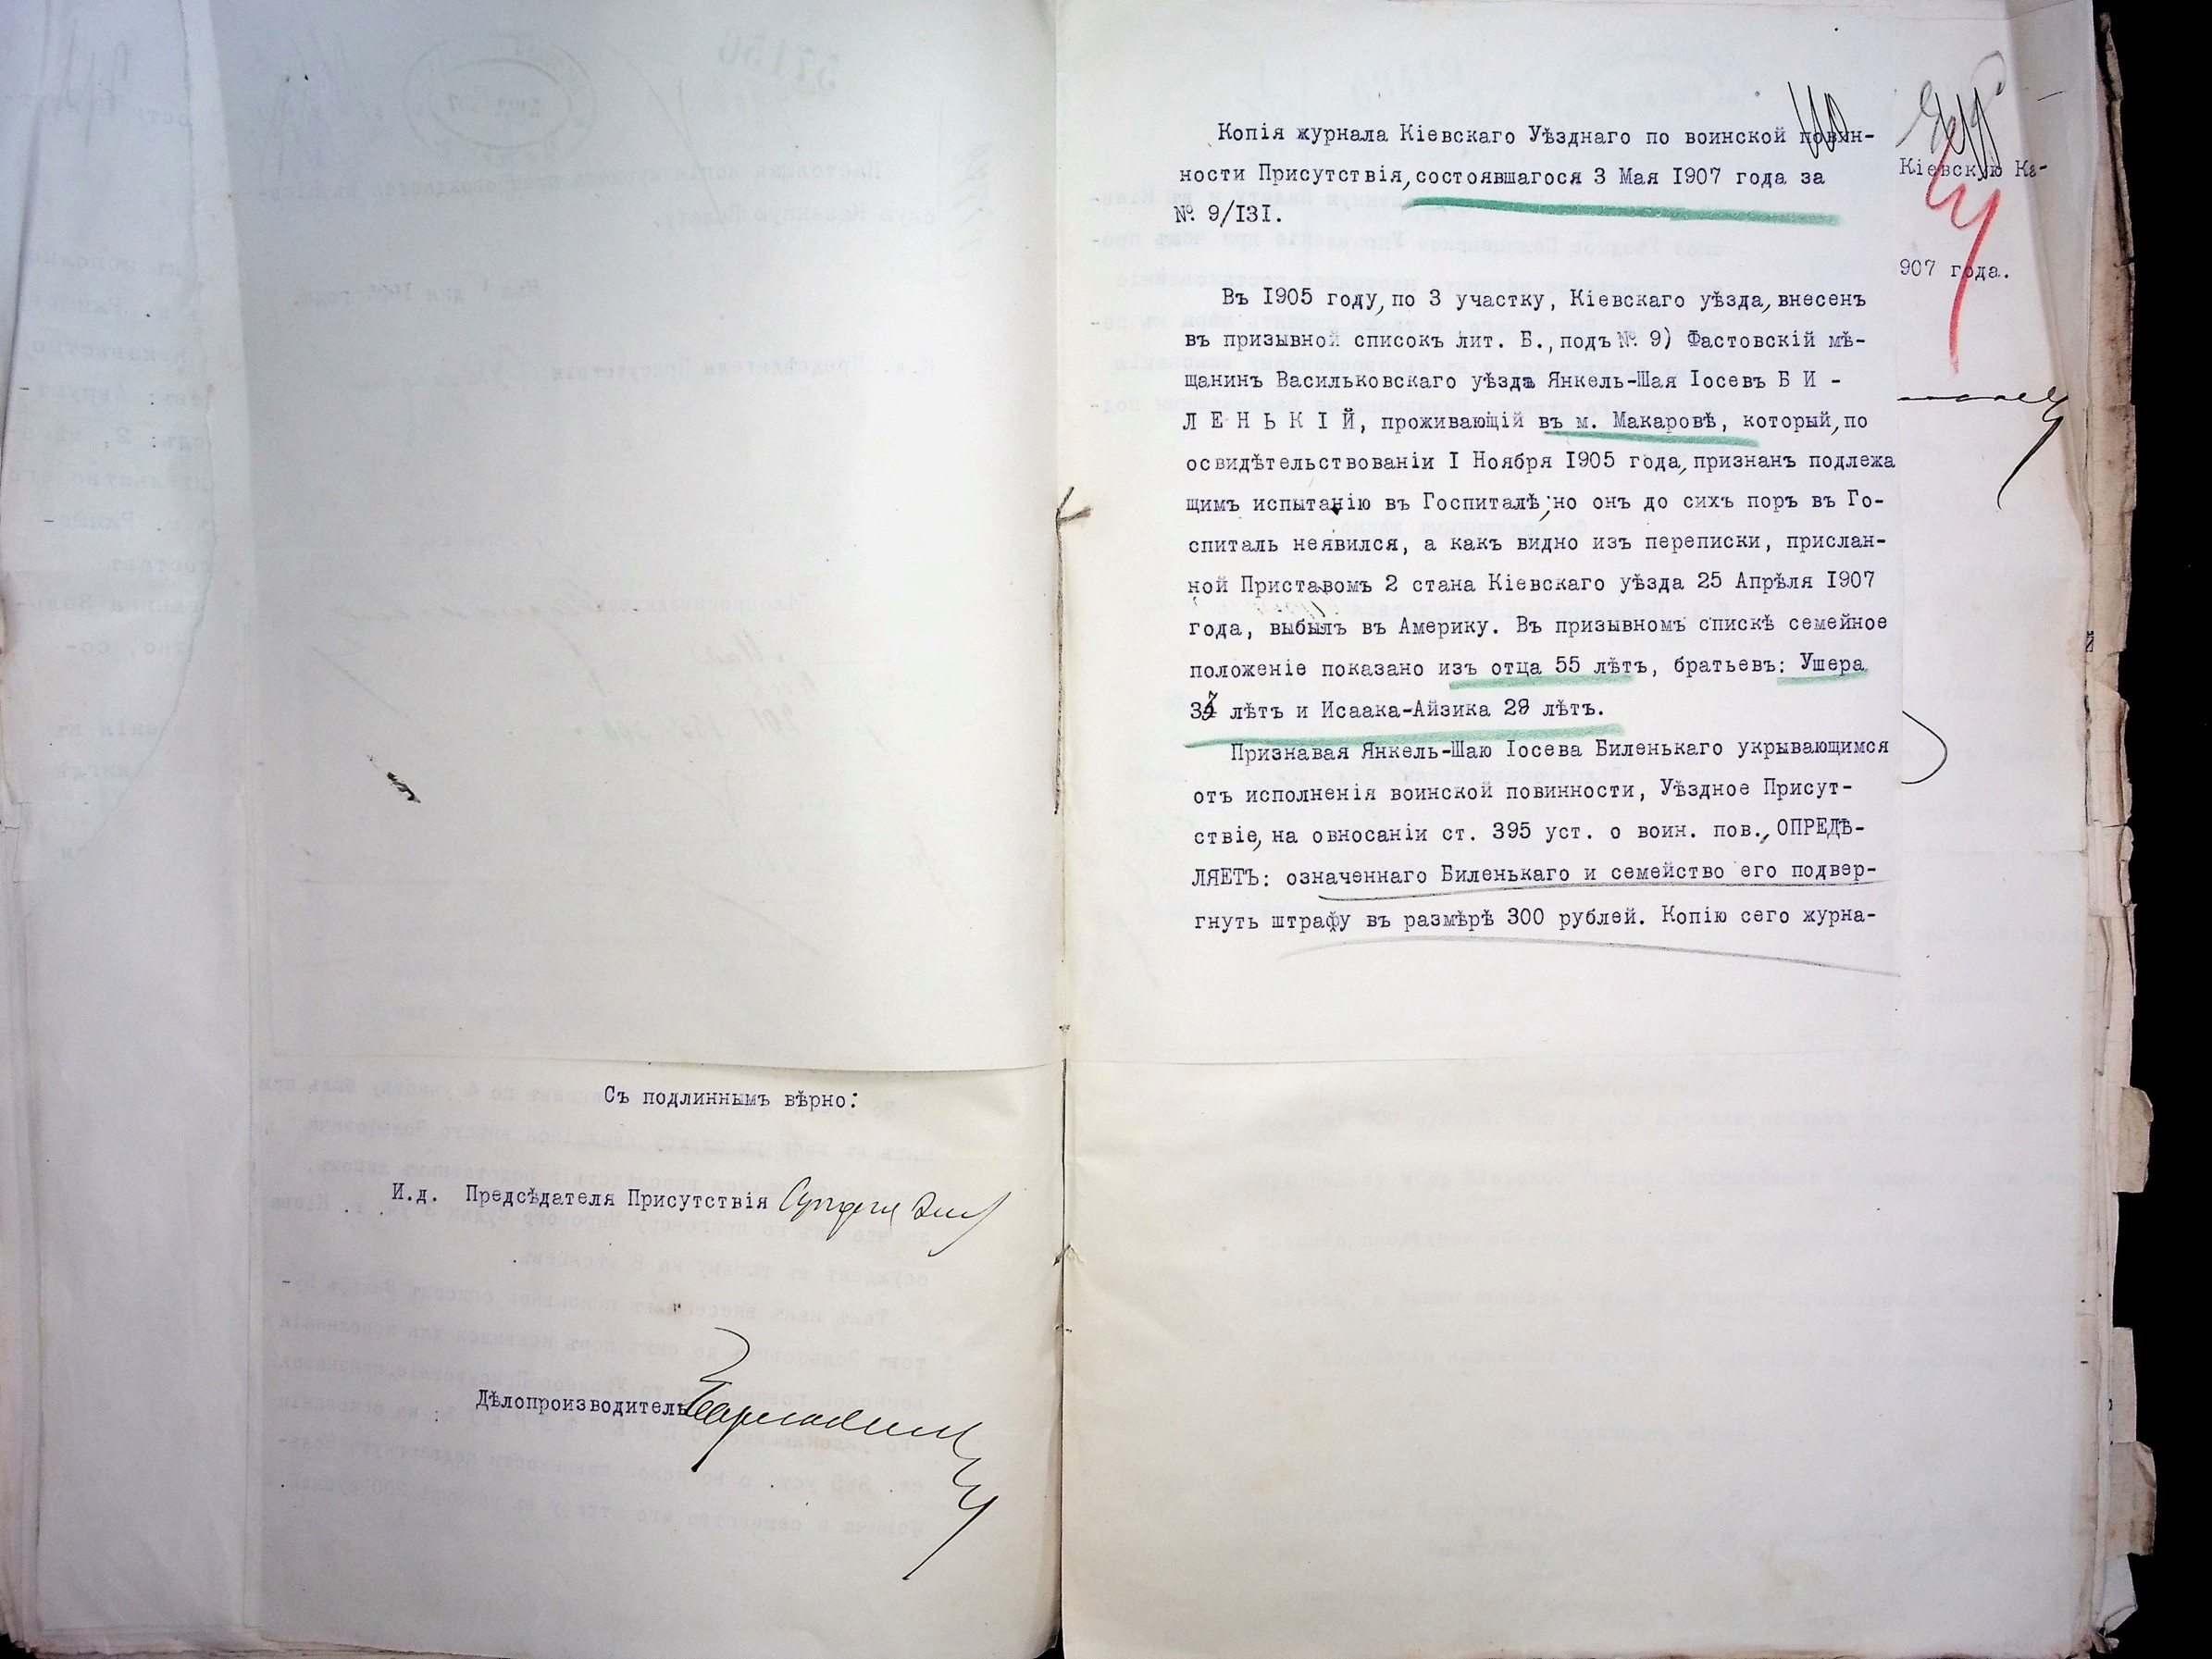 Съ подлиннымъ вѣрно:
И.д. Предсѣдателя Присутствія
Дѣлопроизводитель
Копія журнала Кіевскаго Уѣзднаго по воинской повин-
ности Присутствія, состоявшагося 3 Мая 1907 года за
№. 9/131.
Въ 1905 году, по 3 участку, Кіевскаго уѣзда, внесенъ
въ призывной списокъ лит. Б., подъ №. 9) Фастовскій мѣ-
щанинъ Васильковскаго уѣзда Янкель-Шая Іосевъ Б И -
Л Е Н Ь К І Й, проживающій въ м. Макаровѣ, который, по
освидѣтельствованіи I Ноября 1905 года, признанъ подлежа
щимъ испытанію въ Госпиталѣ; но онъ до сихъ поръ въ Го-
спиталь неявился, а какъ видно изъ переписки, прислан-
ной Приставомъ 2 стана Кіевскаго уѣзда 25 Апрѣля 1907
года, выбылъ въ Америку. Въ призывномъ спискѣ семейное
положеніе показано изъ отца 55 лѣтъ, братьевъ: Ушера
37 лѣтъ и Исаака-Айзика 29 лѣтъ.
Признавая Янкель-Шаю Іосева Биленькаго укрывающимся
отъ исполненія воинской повинности, Уѣздное Присут-
ствіе, на овносаніи ст. 395 уст. о воин. пов., ОПРЕДѢ-
ЛЯЕТЪ: означеннаго Биленькаго и семейство его подвер-
гнуть штрафу въ размѣрѣ 300 рублей. Копію сего журна-
Кіевскую Ка-
907 года.